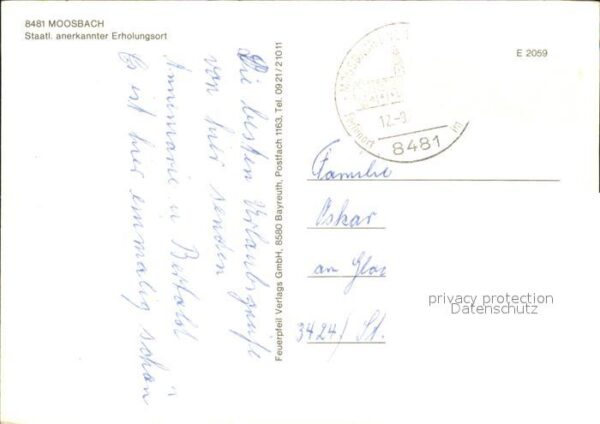 8481 MOOSBACH
Staatl. anerkannter Erholungsort
E 2059
Die besten Urlaubsgrüße
von hier senden
Annemarie u Berthold
Es ist hier einmalig schön
Feuerpfeil Verlags GmbH, 8580 Bayreuth, Postfach 1163, Tel. 0921/21011
MOOSBACH
12.-9
8481
Familie
Oskar
am Glas
3424/ St.
privacy protection
Datenschutz